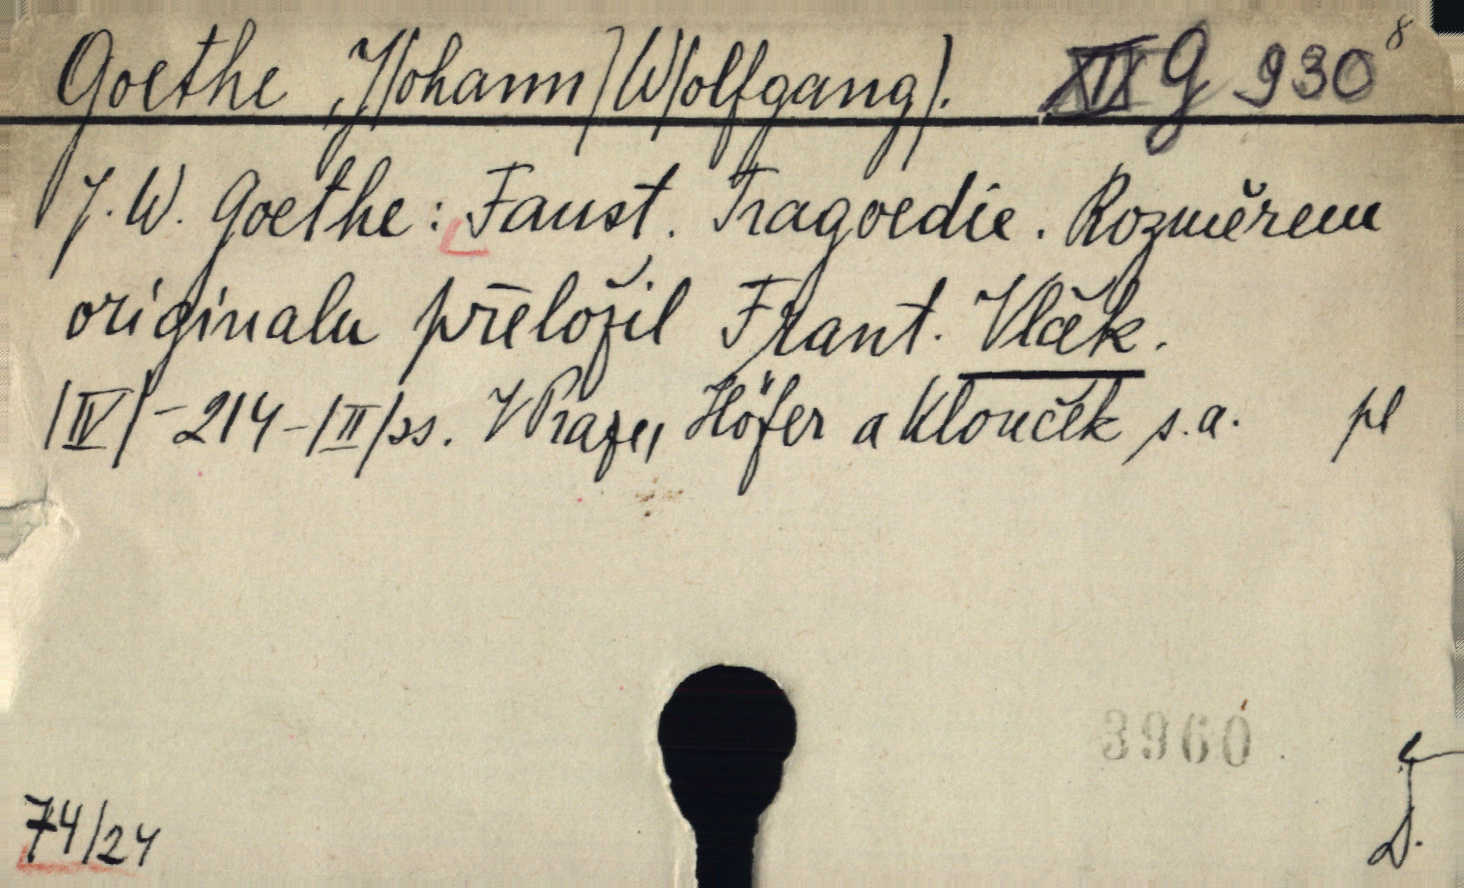 Goethe, J/ohann/ W/olfgang/. XIX G 930⁸
J. W. Goethe: Faust. Tragoedie. Rozměrem
originalu přeložil Frant. Vlček.
/IV/ - 214 - /II/ ss. V Praze, Höfer a Klouček s.a. pl
3960
74/24